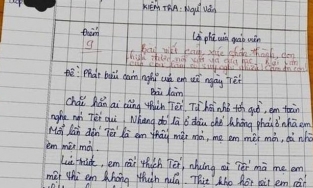 KIỂM TRA: Ngữ văn
Điểm
Lời phê của giáo viên
9
Bài viết cảm xúc chân thành, con
Đề: Phát biểu cảm nghĩ của em về ngày Tết
Bài làm
Chắc hẳn ai cũng thích Tết. Từ hồi nhỏ tới giờ, em toàn
nghe nói Tết vui. Nhưng đó là ở đâu chứ không phải ở nhà em.
Mỗi lần đến Tết là em thấy mệt mỏi, mẹ em mệt mỏi, cả nhà
em mệt mỏi.
Lúc trước, em rất thích Tết, nhưng vì Tết mà mẹ em
mệt thì em không thích nữa. Thịt kho hột vịt em rất